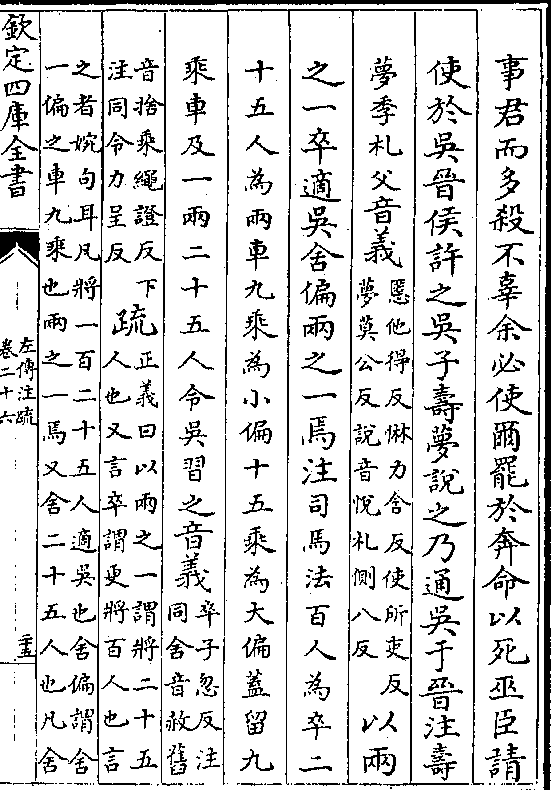 事君而多殺不辜余必使爾罷於奔命以死巫臣請
使於吳晉侯許之吳子壽夢說之乃通吳于晉注壽
夢季札父音義慝他得反惏力含反使所吏反
夢莫公反說音悅札側八反以兩
之一卒適吳舍偏兩之一焉注司馬法百人為卒二
十五人為兩車九乘為小偏十五乘為大偏蓋留九
乘車及一兩二十五人令吳習之音義卒子忽反注
同舍音赦舊
音捨乘繩證反下
注同令力呈反疏正義曰以兩之一謂將二十五
人也又言卒謂更將百人也言
之者婉句耳凡將一百二十五人適吳也舍偏謂舍
一偏之車九乘也兩之一焉又舍二十五人也凡舍
欽定四庫全書
左傳注疏
卷二十六
二五